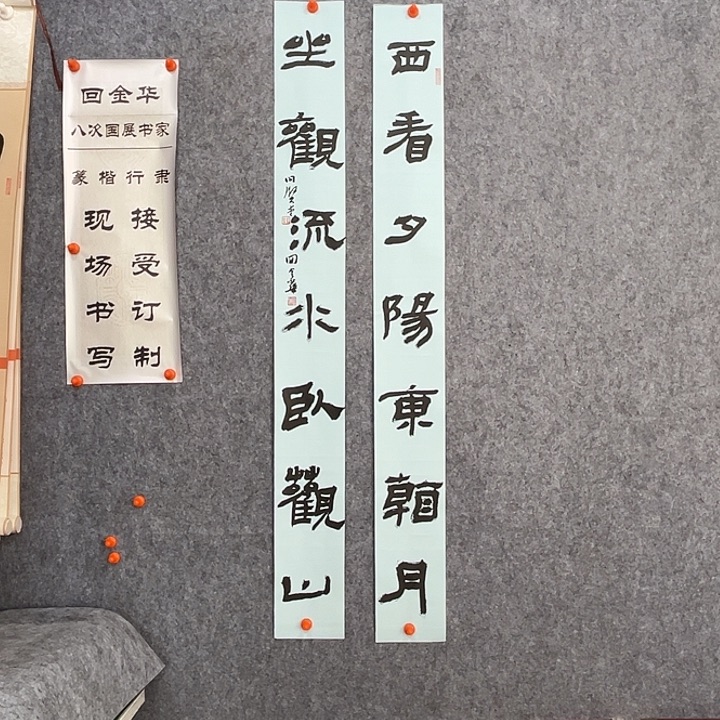 回金华
八次国展书家
篆楷行隶
现场书写
接受订制
西看夕陽東看月
坐觀流水臥觀山
回金華